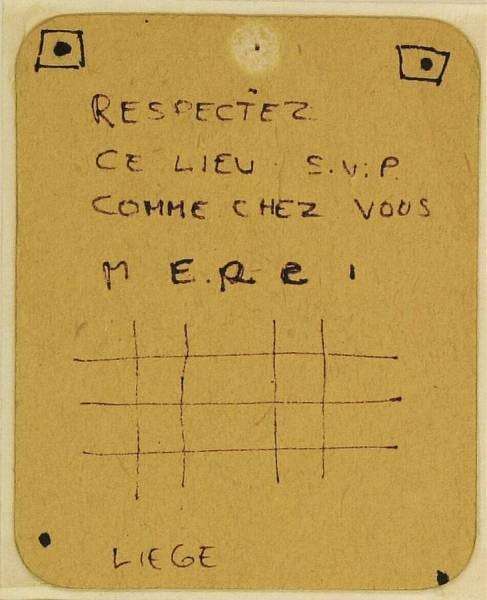 RESPECTEZ
CE LIEU S.V.P
COMME CHEZ VOUS
M E.R C I
LIEGE